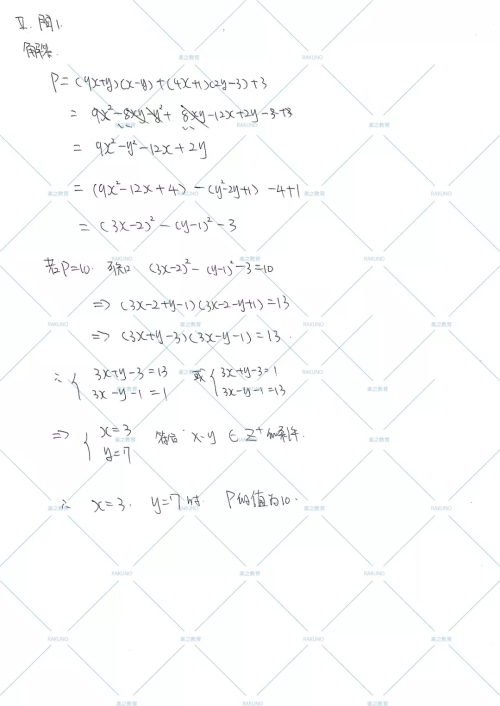 II. 图1.
解
P=(9x+y)(x-y)+(4x+1)(2y-3)+3
= 9x²-8xy-y²+8xy-12x+2y-3+3
= 9x²-y²-12x+2y
= (9x²-12x+4)-(y²-2y+1)-4+1
= (3x-2)²-(y-1)²-3
若P=10. (3x-2)²-(y-1)²-3=10
=> (3x-2+y-1)(3x-2-y+1)=13
=> (3x+y-3)(3x-y-1)=13.
∴ { 3x+y-3=13 或 { 3x+y-3=1
3x-y-1=1 3x-y-1=13
=> { x=3 符合 x·y ∈ Z⁺ 的条件.
y=7
∴ x=3. y=7时 P的值为10.
乘之教育
RAKUNO